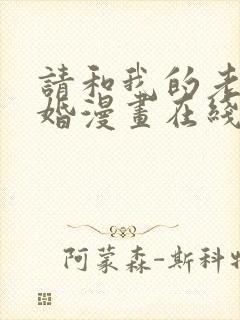 請和我的老
婚漫畫在綫
阿蒙森-斯科特